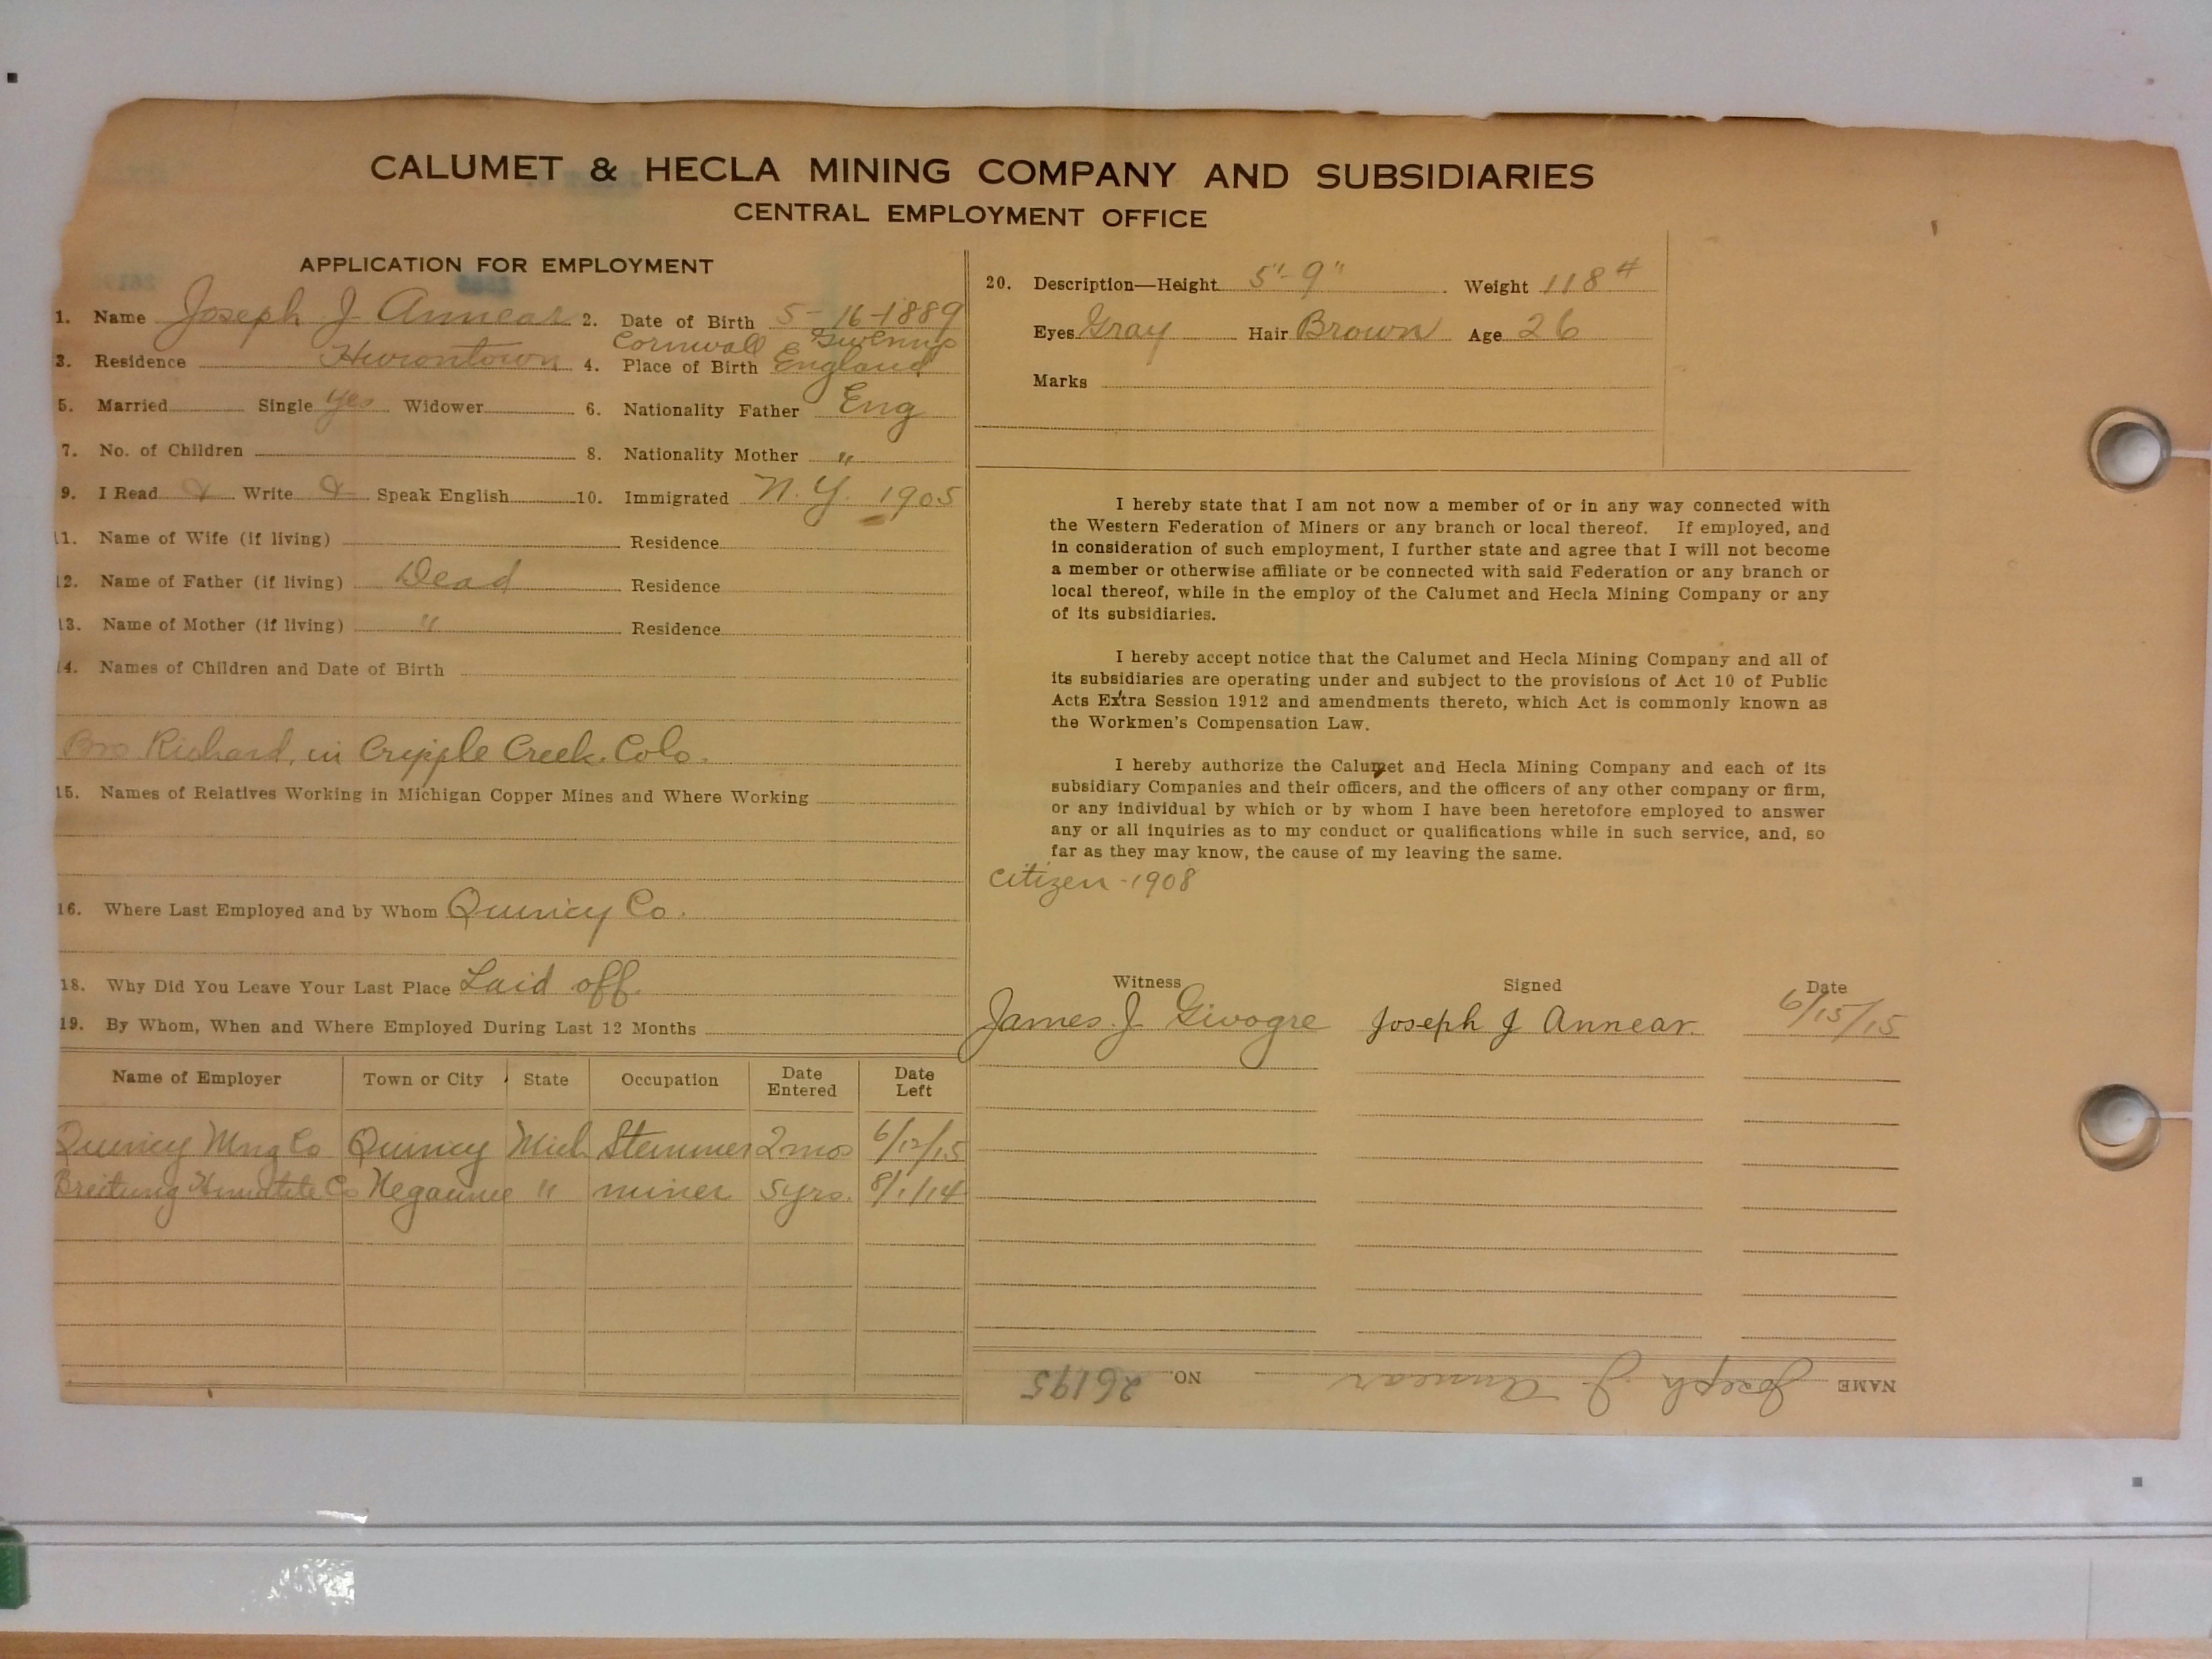 CALUMET & HECLA MINING COMPANY AND SUBSIDIARIES
CENTRAL EMPLOYMENT OFFICE
APPLICATION FOR EMPLOYMENT
1. Name Joseph J. Annear 2. Date of Birth 5-16-1889
Cornwall
3. Residence Hurontown 4. Place of Birth England
5. Married Single yes Widower 6. Nationality Father Eng
7. No. of Children 8. Nationality Mother "
9. I Read & Write & Speak English 10. Immigrated N.Y. 1905
11. Name of Wife (if living) Residence
12. Name of Father (if living) Dead Residence
13. Name of Mother (if living) " Residence
14. Names of Children and Date of Birth
Bro Richard, in Cripple Creek. Colo.
15. Names of Relatives Working in Michigan Copper Mines and Where Working
16. Where Last Employed and by Whom Quincy Co.
18. Why Did You Leave Your Last Place Laid off.
19. By Whom, When and Where Employed During Last 12 Months
Name of Employer Town or City State Occupation Date Entered Date Left
Quincy Mng Co Quincy Mich Stemmer 2mos 6/12/15
Breitung Hematite Co Negaunee " miner 5yrs. 8/1/14
20. Description—Height 5'-9" Weight 118#
Eyes Gray Hair Brown Age 26
Marks
I hereby state that I am not now a member of or in any way connected with
the Western Federation of Miners or any branch or local thereof. If employed, and
in consideration of such employment, I further state and agree that I will not become
a member or otherwise affiliate or be connected with said Federation or any branch or
local thereof, while in the employ of the Calumet and Hecla Mining Company or any
of its subsidiaries.
I hereby accept notice that the Calumet and Hecla Mining Company and all of
its subsidiaries are operating under and subject to the provisions of Act 10 of Public
Acts Extra Session 1912 and amendments thereto, which Act is commonly known as
the Workmen's Compensation Law.
I hereby authorize the Calumet and Hecla Mining Company and each of its
subsidiary Companies and their officers, and the officers of any other company or firm,
or any individual by which or by whom I have been heretofore employed to answer
any or all inquiries as to my conduct or qualifications while in such service, and, so
far as they may know, the cause of my leaving the same.
citizen-1908
Witness Signed Date
James J. Joseph J Annear. 6/15/15
NAME Joseph J. Annear NO. 26195